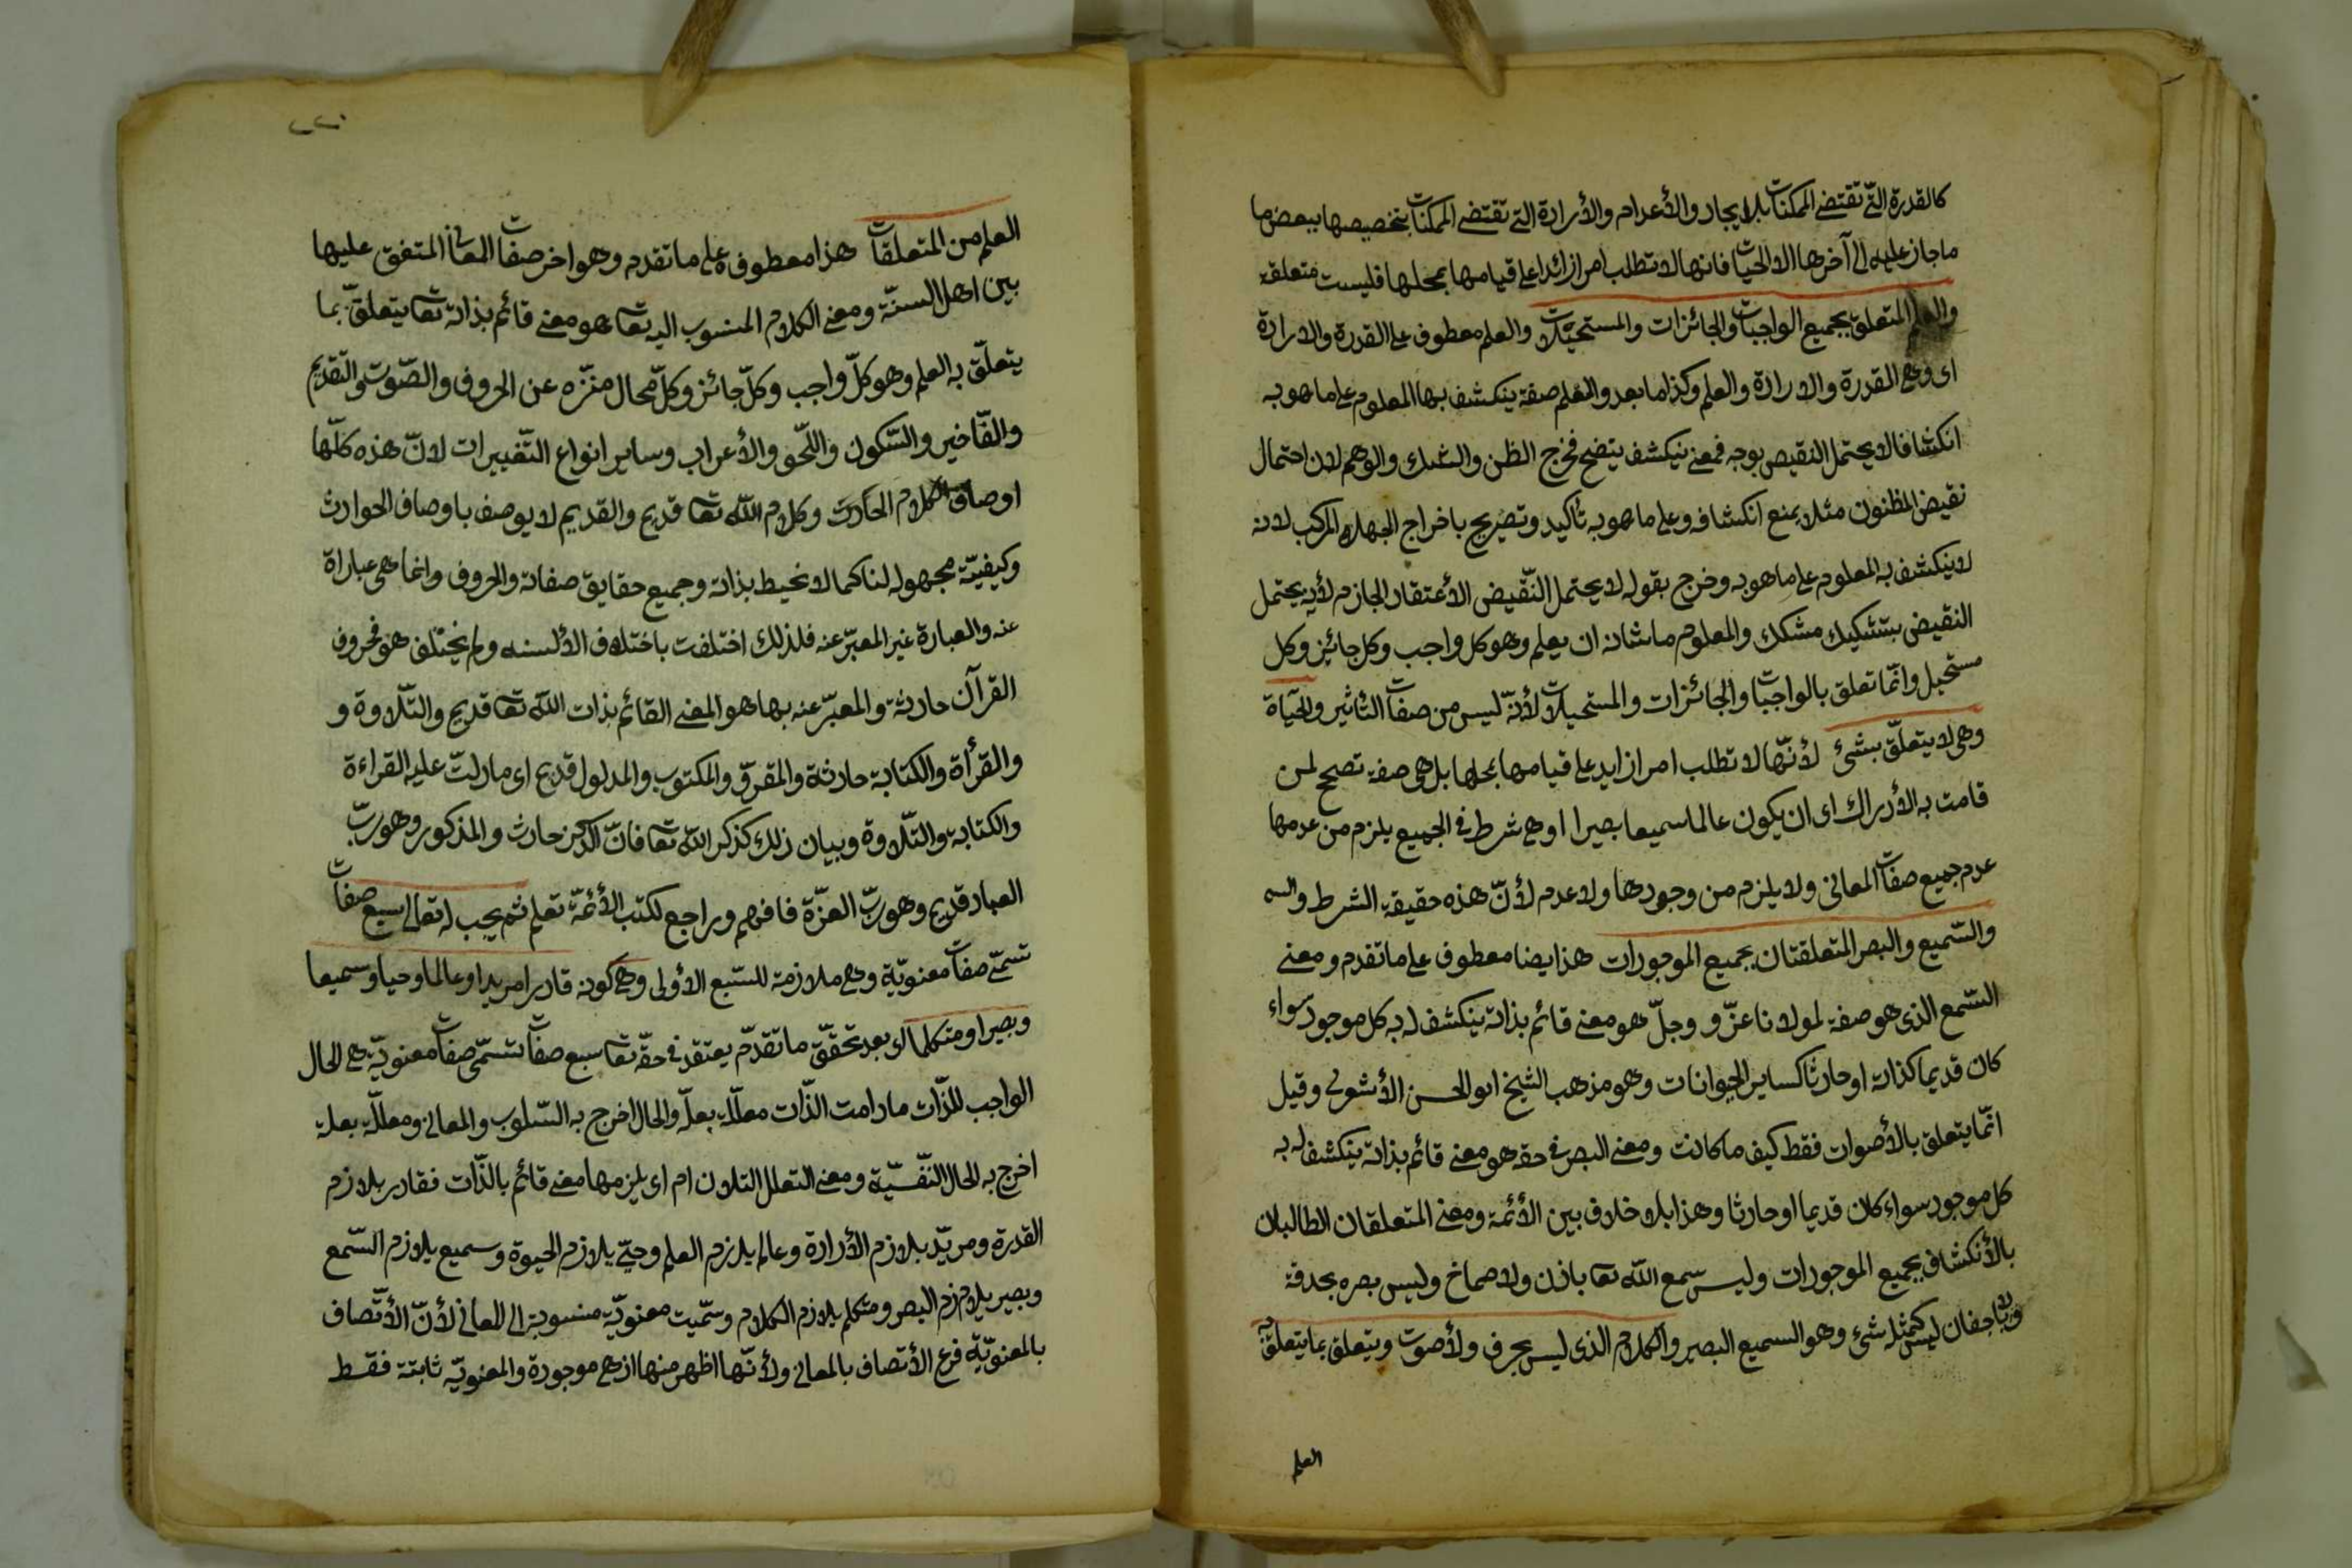 كالقدرة التّي تقتضي الممكنات بالايجاد والأعدام والأرادة التي تقتضي الممكنات بتخصيصها ببعض ما
ماجاز عليه الى آخرها الا الحيات فانها لا تطلب امرا زائدا على قيامها بمحلها فليست متعلقة
والعلم المتعلق بجميع الواجبات والجائزات والمستحيلات والعلم معطوف على القدرة والارادة
اى وهي القدرة والارادة والعلم وكذا ما بعد والعلم صفة ينكشف بها المعلوم على ما هو به
انكشافا لا يحتمل النقيض بوجه فمعنى ينكشف يتضح فخرج الظن والشك والوهم لان احتمال
نقيض المظنون مثلا يمنع انكشافه وعلى ما هو به تأكيد وتصريح باخراج الجهل المركب لانه
لا ينكشف به المعلوم على ما هو به وخرج بقوله لا يحتمل النّقيض الأعتقاد الجازم لأنه يحتمل
النقيض بتشكيك مشكك والمعلوم ما شانه ان يعلم وهو كل واجب وكل جائيز وكل
مستحيل وانّما تعلق بالواجبات والجائزات والمستحيلات لأنّه ليس من صفات التأثير والحياة
وهي لا يتعلّق بشئ لأنّها لا تطلب امرا زايد على قيامها بمحلها بل هي صفة تصحح لمن
قامت به الأدراك اى ان يكون عالما سميعا بصيرا او هي شرط في الجميع يلزم من عدمها
عدم جميع صفات المعاني ولا يلزم من وجودها ولا عدم لأنّ هذه حقيقة الشرط والسم
والسّميع والبصر المتعلقتان بجميع الموجودات هذا يضا معطوف على ما تقدم ومعنى
السّمع الذى هو صفة لمولانا عزّ و وجلّ هو معنى قائم بذاته ينكشف له به كل موجود سواء
كان قديما كذاته او حادثا كساير الحيوانات وهو مذهب الشيخ ابو الحسن الأشعرى وقيل
انّما يتعلق بالأصوات فقط كيف ما كانت ومعنى البصر في حقه هو معنى قائم بذاته ينكشف له به
كل موجود سواء كان قديما او حادثا وهذا بلا خلاف بين الأئمة ومعنى المتعلقان الطالبان
بالأنكشاف بجميع الموجودات وليس سمع الله تعا باذن ولا صماخ وليس بصره بحدقة
ولا باجفان ليس كمثله شئ وهو السميع البصير والكلام الذى ليس بحرف ولأصوت ويتعلق بما يتعلق به
العلم
العلم من المتعلقات هذا معطوف على ما تقدم وهو اخر صفات المعاني المتفق عليها
بين اهل السنّة ومعنى الكلام المنسوب اليه تعا هو معنى قائم بذاته تعا يتعلّق بما
يتعلّق به العلم وهو كلّ واجب وكلّ جائز وكلّ محال منزّه عن الحروف والصّوت والتّقديم
والتّاخير والسّكون واللّحو والأعراب وساير انواع التّغييرات لانّ هذه كلّها
اوصاف الكلام الحادث وكلام الله تعا قديم والقديم لا يوصف باوصاف الحوادث
وكيفيّته مجهوله لنا كما لا نحيط بذاته وجميع حقايق صفاته والحروف وانما هي عباراة
عنه والعبارة غير المعبّر عنه فلذلك اختلفت باختلاف الألسنه ولم يختلف هو فحروف
القرآن حادثه والمعبّر عنه بها هو المعنى القائم بذات الله تعا قديم والتّلاوة و
والقرأة والكتابة حادثة والمقروّ والمكتوب والمدلول قديم اى ما دلّت عليه القراءة
والكتابة والتّلاوة وبيان ذلك كذكر الله تعا فانّ الذكر حادث والمذكور وهو ربّ
العباد قديم وهو ربّ العزّة فافهم وراجع لكتب الأئمّة تعلم ثم يجب له تعالى سبع صفات
تسمّى صفات معنويّة وهي ملازمة للسّبع الأولى وهي كونه قادرا مريدا وعالما وحيا وسميعا
وبصيرا ومتكلما اى بعد تحقّق ما تقدّم يعتقد في حقّه تعا سبع صفات تسمّى صفات معنويّة هي الحال
الواجب للذّات مادامت الذّات معلّلة بعلّة والحال اخرج به السّلوب والمعاني ومعلّلة بعلة
اخرج به الحال النّفسيّة ومعنى التعلل التلان ام اى يلزمها معنى قائم بالذّات فقادر يلازم
القدرة ومريّد يلازم الأرادة وعالم يلازم العلم وحيّ يلازم الحيوة وسميع يلازم السّمع
وبصير يلازم البصر ومتكلم يلازم الكلام وسمّيت معنويّة منسوبة الى المعاني لأنّ الأتّصاف
بالمعنويّة فرع الأتصاف بالمعاني ولأنّها اظهر منها اذ هي موجودة والمعنويّة ثابتة فقط